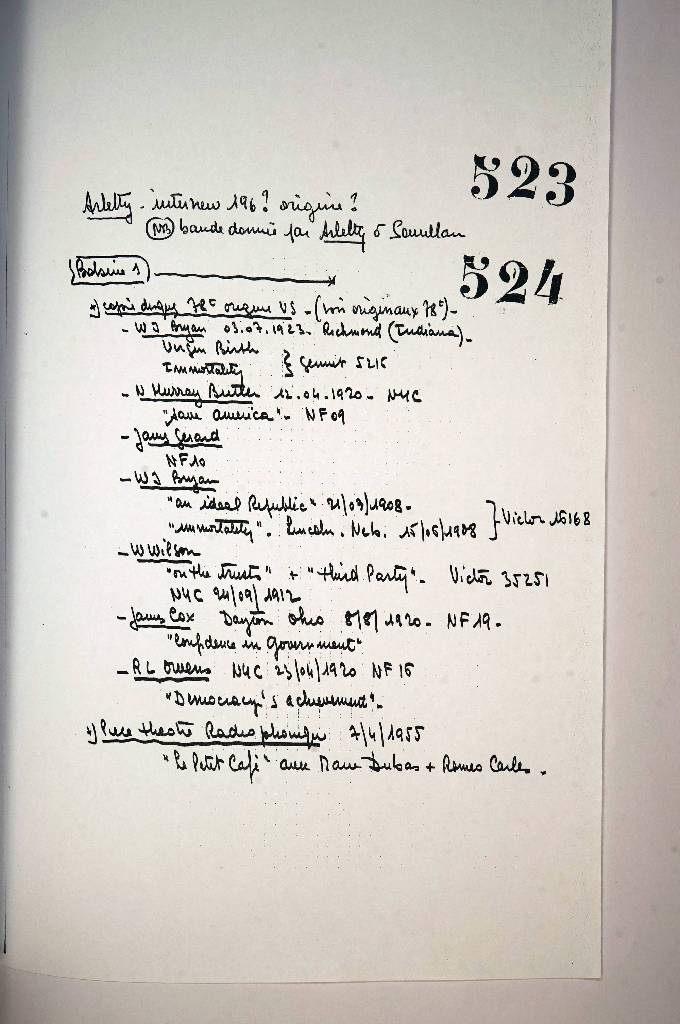 523
Arletty - interview 196? origine?
(NB) bande donnée par Arletty à
524
Bobine 1
*) copie disques 78t origine US - (voir originaux 78t) -
- WJ Bryan 03.07.1923. Richmond (Indiana) -
Virgin Birth
Immortality } Gennett 5215
- N Murray Butler 12.04.1920 - NYC
"Save america" - NF09
- James Gerard
NF10
- WJ Bryan
"an ideal Republic" 21/03/1908 -
"immortality" - Lincoln. Neb. 15/05/1908 } Victor 16168
- W Wilson
"on the trusts" + "third Party" - Victor 35251
NYC 24/09/1912
- James Cox Dayton Ohio 8/8/1920 - NF19 -
"Confidence in government"
- RL Owens NYC 23/04/1920 NF15
"Democracy's achievement" -
*) Piece theatre Radiophonique 7/4/1955
"Le Petit Café" avec Marie Dubas + Romeo Carles .